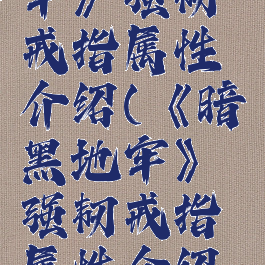 牢》强韧
戒指属性
介绍(《暗
黑地牢》
强韧戒指
属性介绍